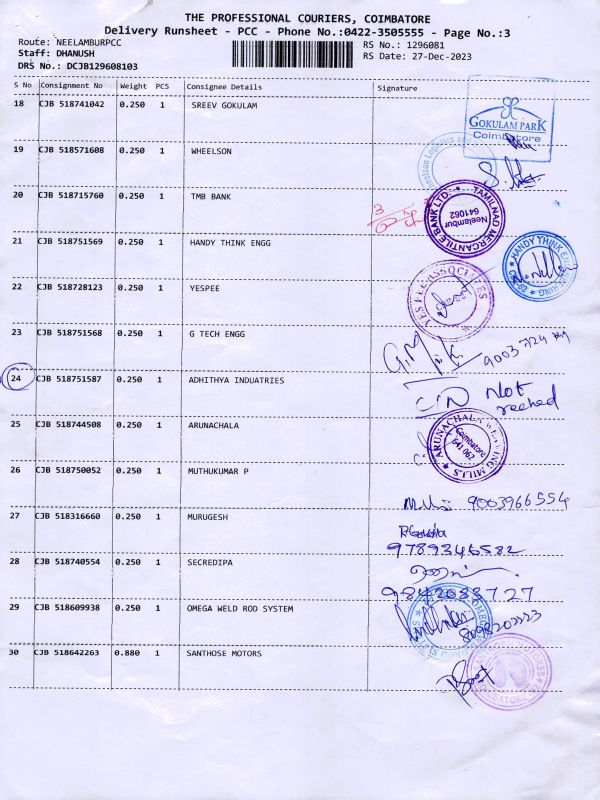 THE PROFESSIONAL COURIERS, COIMBATORE
Delivery Runsheet - PCC - Phone No.:0422-3505555 - Page No.:3
Route: NEELAMBURPCC
RS No.: 1296081
Staff: DHANUSH
RS Date: 27-Dec-2023
DRS No.: DCJB129608103
S No Consignment No Weight PCS Consignee Details Signature
18 CJB 518741042 0.250 1 SREEV GOKULAM
GOKULAM PARK
Coimbatore
19 CJB 518571608 0.250 1 WHEELSON
20 CJB 518715760 0.250 1 TMB BANK
TAMILNAD MERCANTILE BANK LTD.
Neelambur
641062
21 CJB 518751569 0.250 1 HANDY THINK ENGG
HANDY THINK ENGINEERING
22 CJB 518728123 0.250 1 YESPEE
YESPEE ASSOCIATES
23 CJB 518751568 0.250 1 G TECH ENGG
24 CJB 518751587 0.250 1 ADHITHYA INDUATRIES
Not
reached
25 CJB 518744508 0.250 1 ARUNACHALA
ARUNACHALA WEAVING MILLS
Coimbatore
641 062
26 CJB 518750052 0.250 1 MUTHUKUMAR P
9003966554
27 CJB 518316660 0.250 1 MURUGESH
9789346582
28 CJB 518740554 0.250 1 SECREDIPA
9842083727
29 CJB 518609938 0.250 1 OMEGA WELD ROD SYSTEM
30 CJB 518642263 0.880 1 SANTHOSE MOTORS